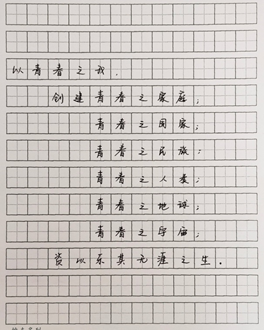 以青春之我.
创建青春之家庭;
青春之国家;
青春之民族:
青春之人类;
青春之地球;
青春之宇宙;
资以乐其无涯之生.